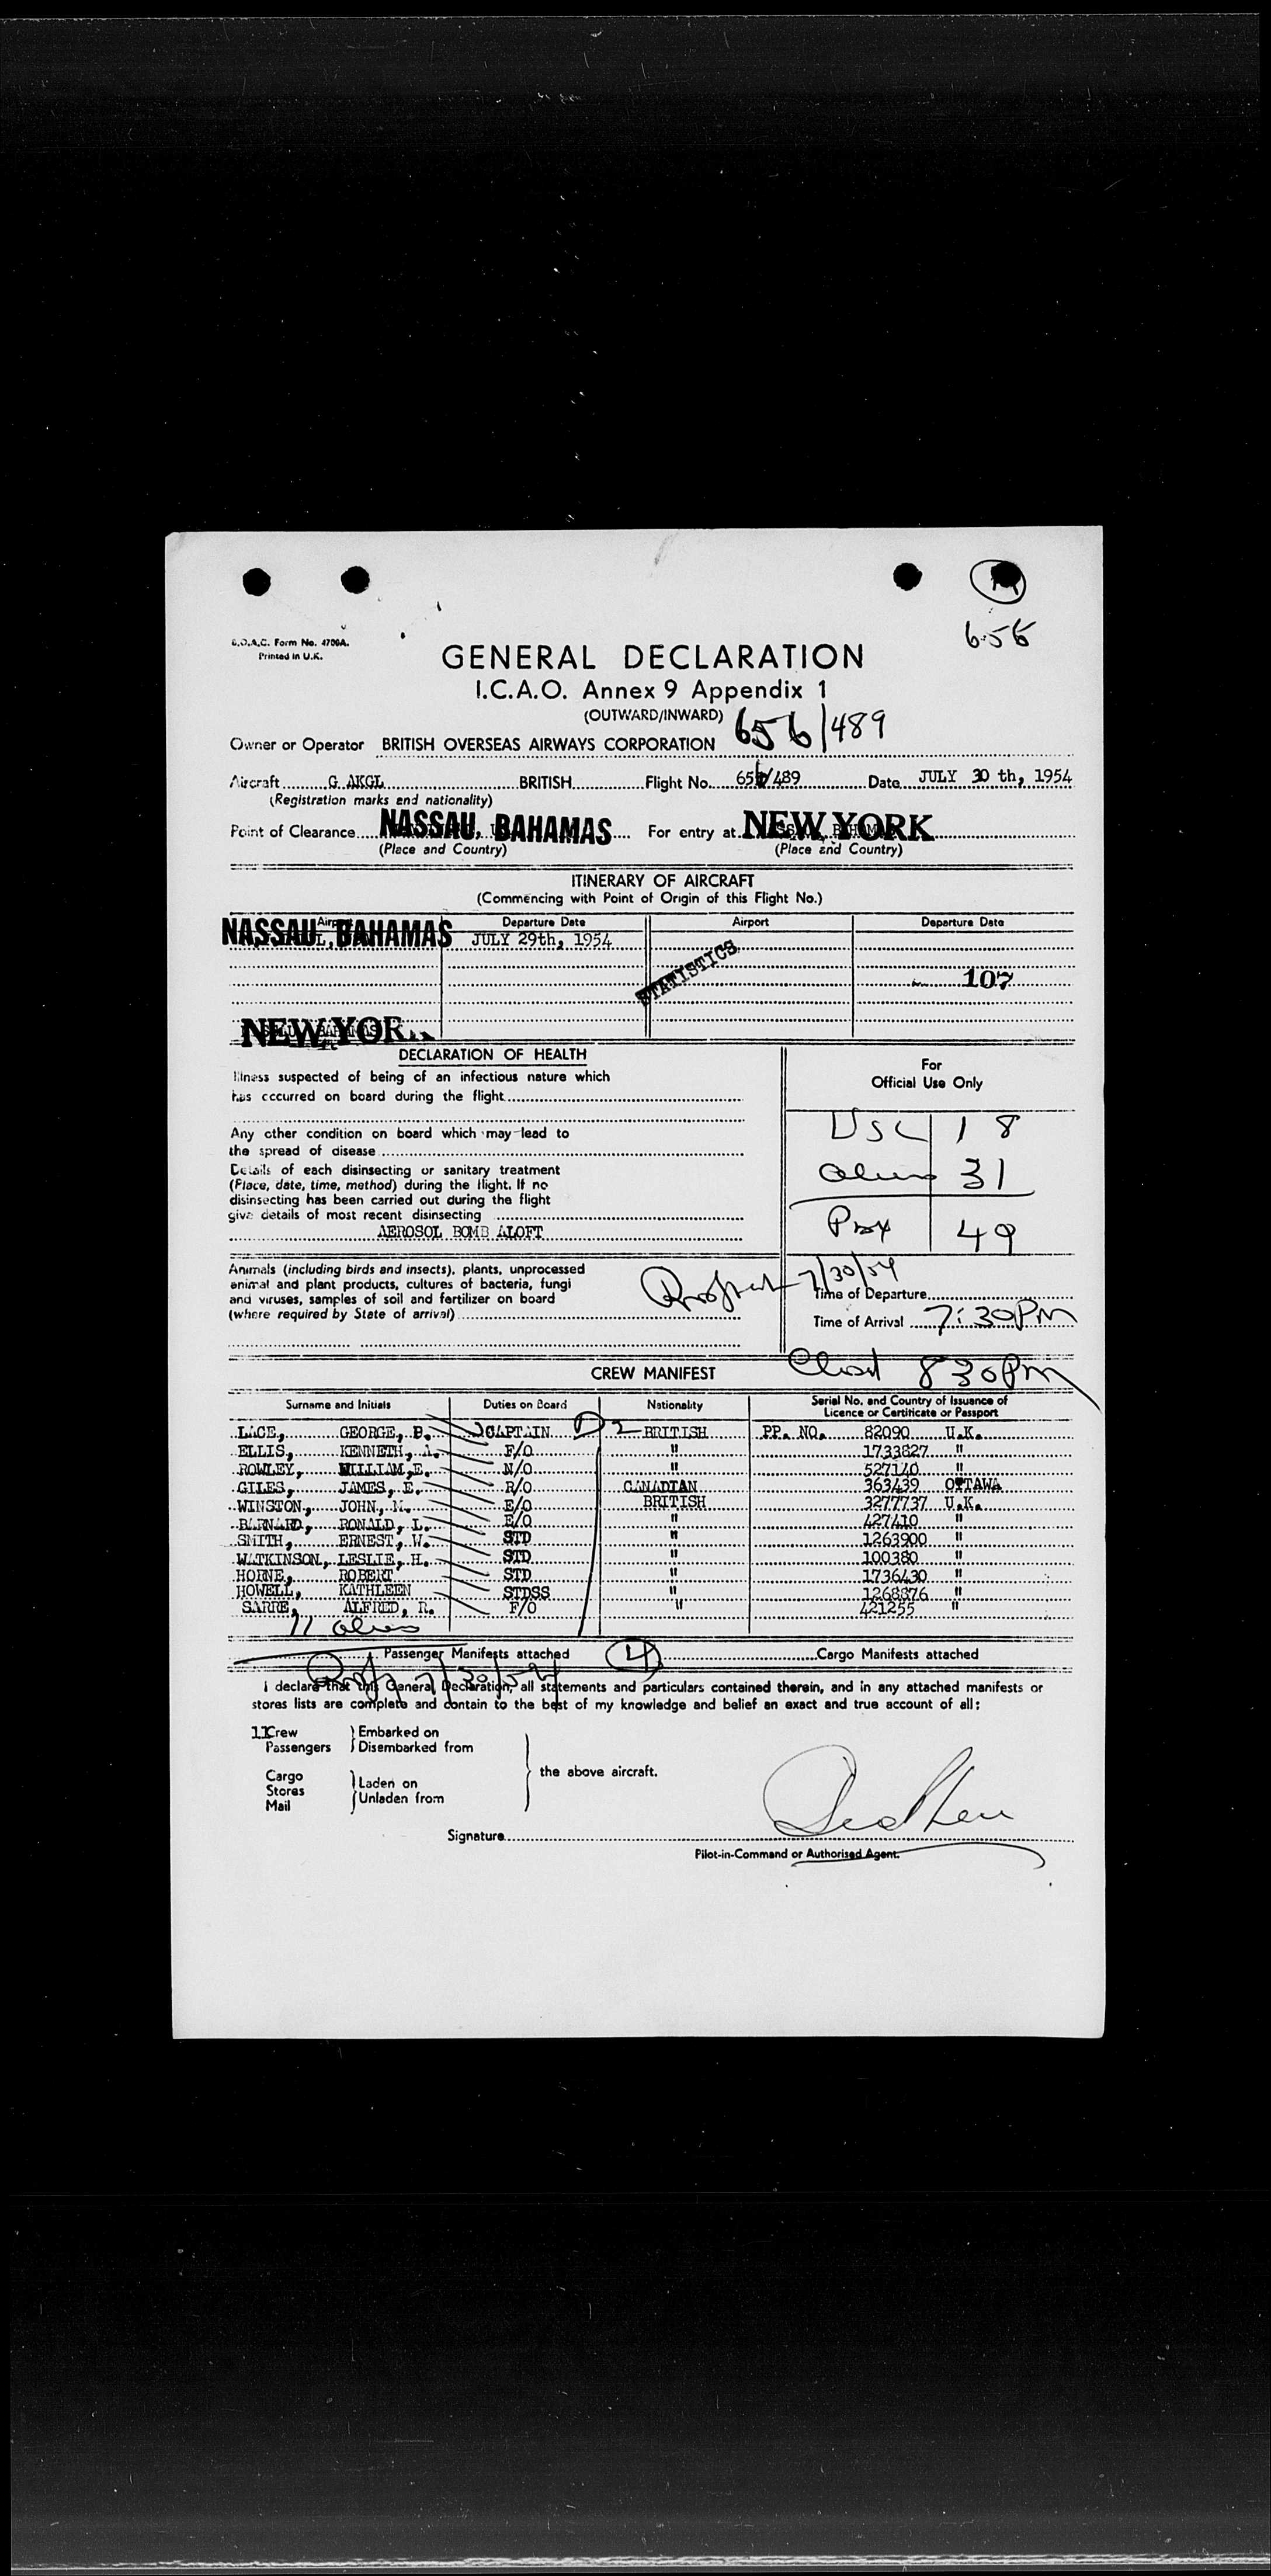 656
B.O.A.C. Form No. 4700A.
Printed in U.K.
GENERAL DECLARATION
I.C.A.O. Annex 9 Appendix 1
(OUTWARD/INWARD) 656/489
Owner or Operator BRITISH OVERSEAS AIRWAYS CORPORATION
Aircraft G AKGL BRITISH Flight No. 656/489 Date JULY 30 th, 1954
(Registration marks and nationality)
Point of Clearance NASSAU, BAHAMAS For entry at NEW YORK
(Place and Country) (Place and Country)
ITINERARY OF AIRCRAFT
(Commencing with Point of Origin of this Flight No.)
Airport Departure Date Airport Departure Date
NASSAU, BAHAMAS JULY 29th, 1954
STATISTICS
107
NEW YORK
DECLARATION OF HEALTH
Illness suspected of being of an infectious nature which
has occurred on board during the flight
Any other condition on board which may lead to
the spread of disease
Details of each disinsecting or sanitary treatment
(Place, date, time, method) during the flight. If no
disinsecting has been carried out during the flight
give details of most recent disinsecting
AEROSOL BOMB ALOFT
Animals (including birds and insects), plants, unprocessed
animal and plant products, cultures of bacteria, fungi
and viruses, samples of soil and fertilizer on board
(where required by State of arrival)
For
Official Use Only
USC 18
Aliens 31
Pax 49
7/30/54
Time of Departure
Time of Arrival 7:30 PM
830 PM
CREW MANIFEST
Surname and Initials Duties on Board Nationality Serial No. and Country of Issuance of
Licence or Certificate or Passport
LACE, GEORGE, P. CAPTAIN D2 BRITISH PP. NO. 82090 U.K.
ELLIS, KENNETH, A. F/O " 1733827 "
ROWLEY, WILLIAM, E. N/O " 527140 "
GILES, JAMES, E. R/O CANADIAN 363439 OTTAWA
WINSTON, JOHN, M. E/O BRITISH 3277737 U.K.
BARNARD, RONALD, L. E/O " 427410 "
SMITH, ERNEST, W. STD " 1263900 "
WATKINSON, LESLIE, H. STD " 100380 "
HORNE, ROBERT STD " 1736430 "
HOWELL, KATHLEEN STDSS " 1268876 "
SARRE, ALFRED, R. F/O " 421255 "
11 aliens
Passenger Manifests attached 4 Cargo Manifests attached
7/30/54
I declare that this General Declaration, all statements and particulars contained therein, and in any attached manifests or
stores lists are complete and contain to the best of my knowledge and belief an exact and true account of all:
11 Crew Embarked on
Passengers Disembarked from
the above aircraft.
Cargo
Stores Laden on
Mail Unladen from
Signature
Pilot-in-Command or Authorised Agent.